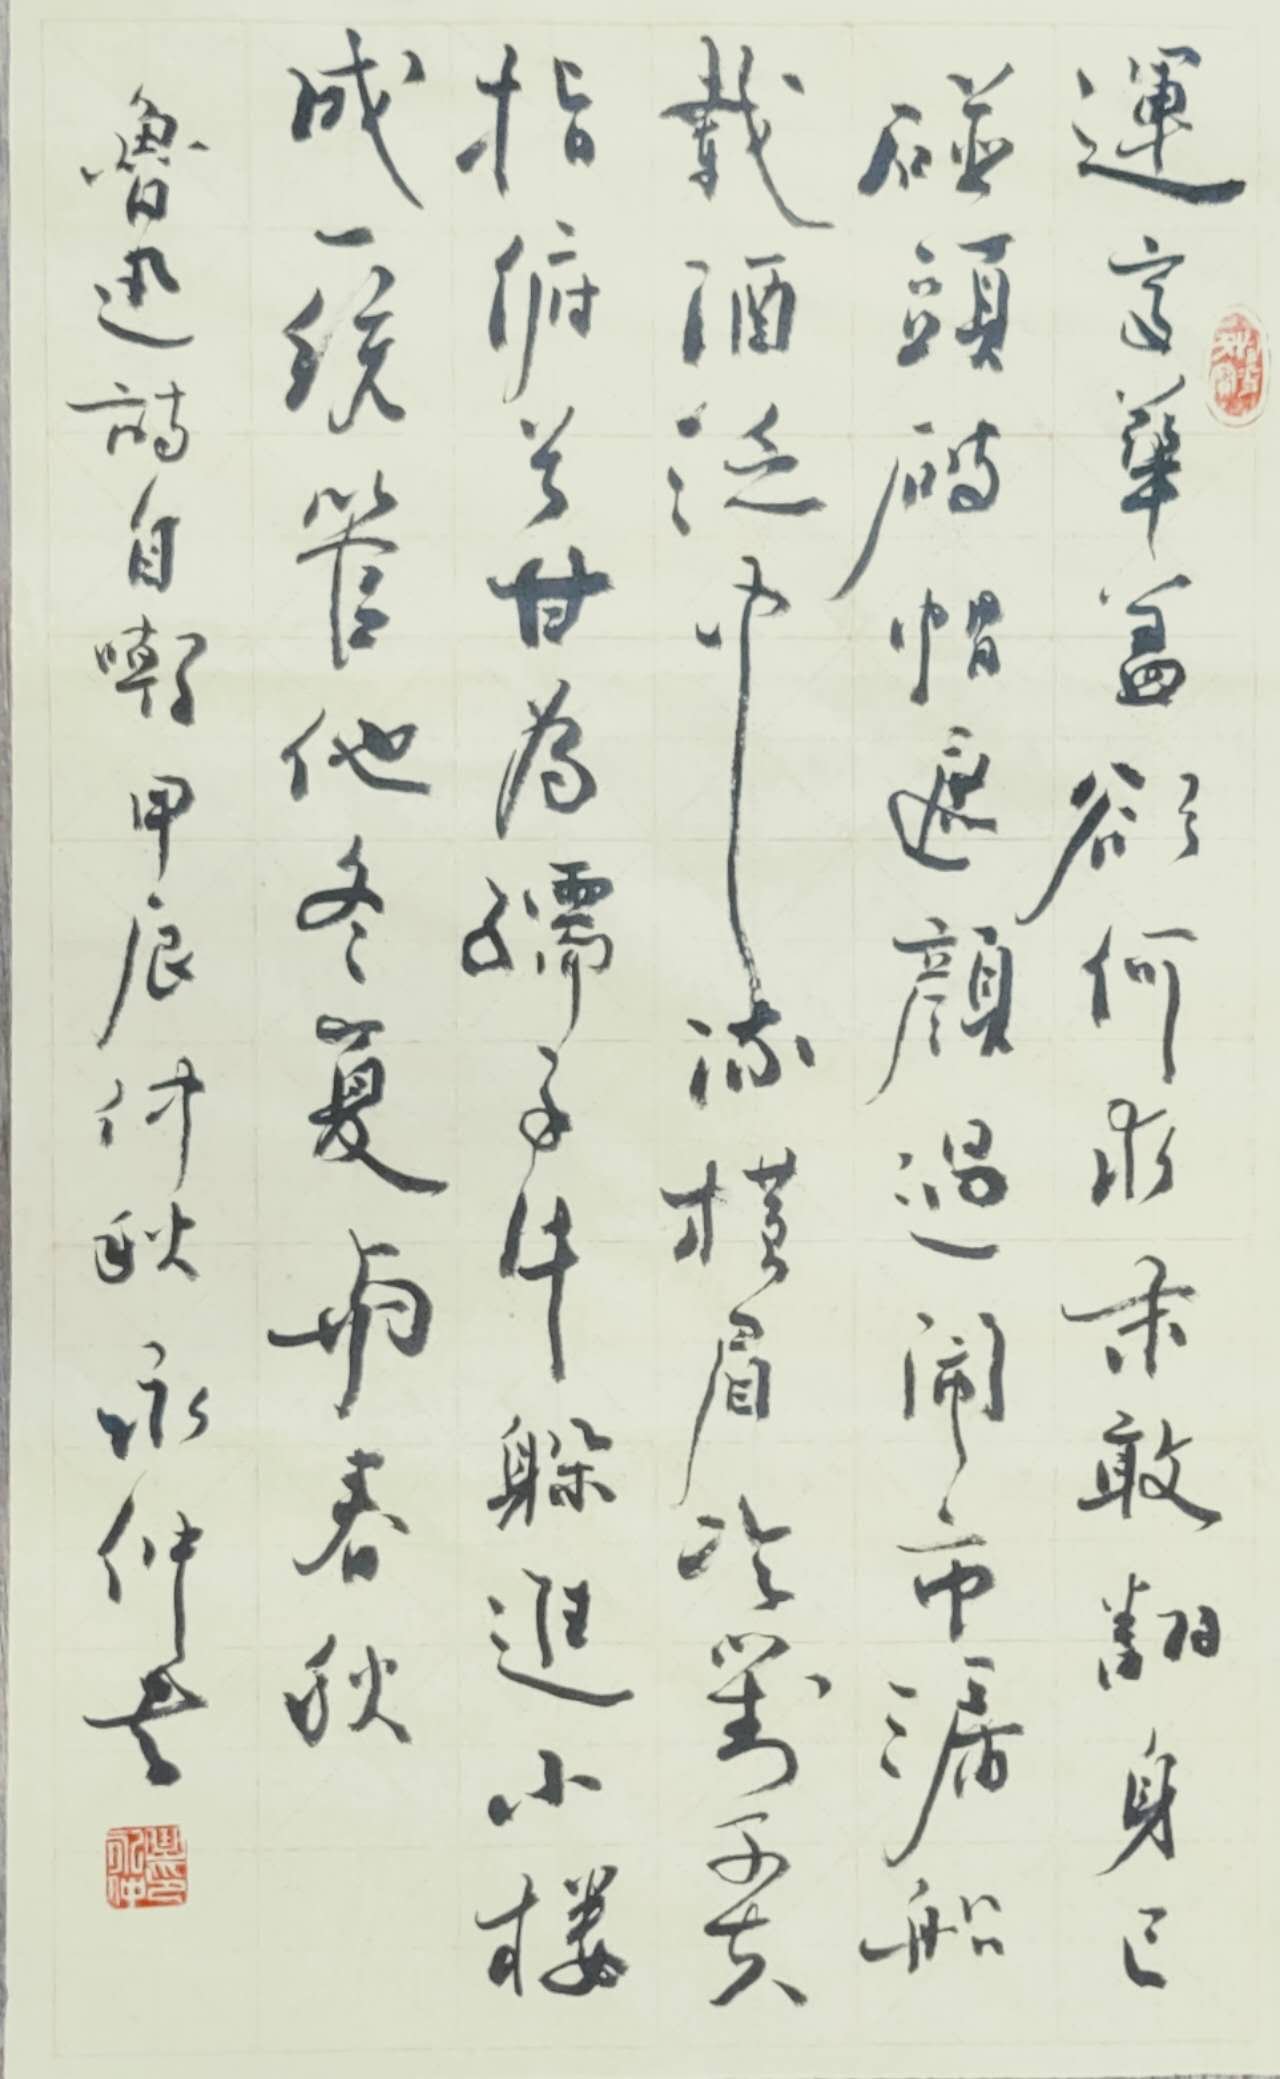 運交華蓋欲何求未敢翻身已
碰頭破帽遮顏過鬧市漏船
載酒泛中流橫眉冷對千夫
指俯首甘為孺子牛躲進小樓
成一統管他冬夏與春秋
魯迅詩自嘲甲辰仲秋永仲書